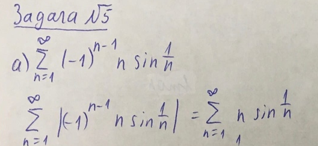 Задача №5
а) ∑_{n=1}^{∞} (-1)^{n-1} n sin 1/n
∑_{n=1}^{∞} |(-1)^{n-1} n sin 1/n| = ∑_{n=1}^{∞} n sin 1/n